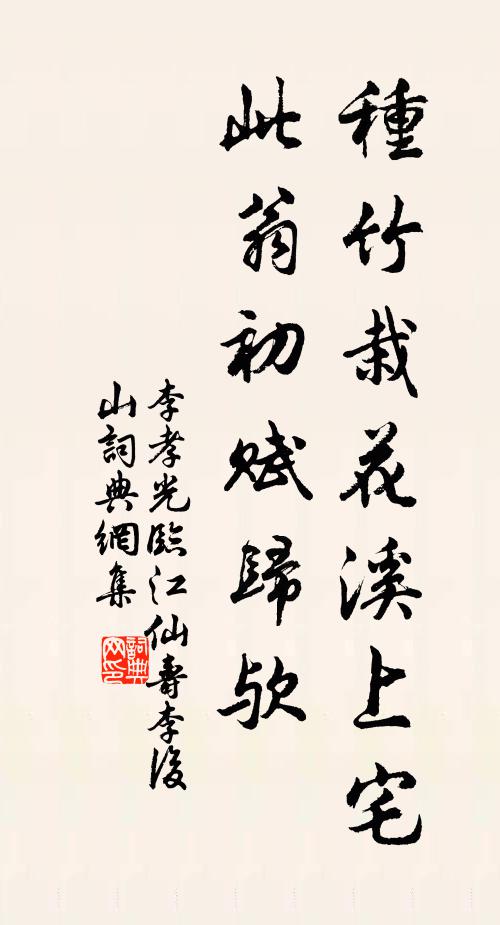 種竹栽花溪上宅
此翁初賦歸欤
李孝光臨江仙壽李後
山詞典網集
詞典
网印